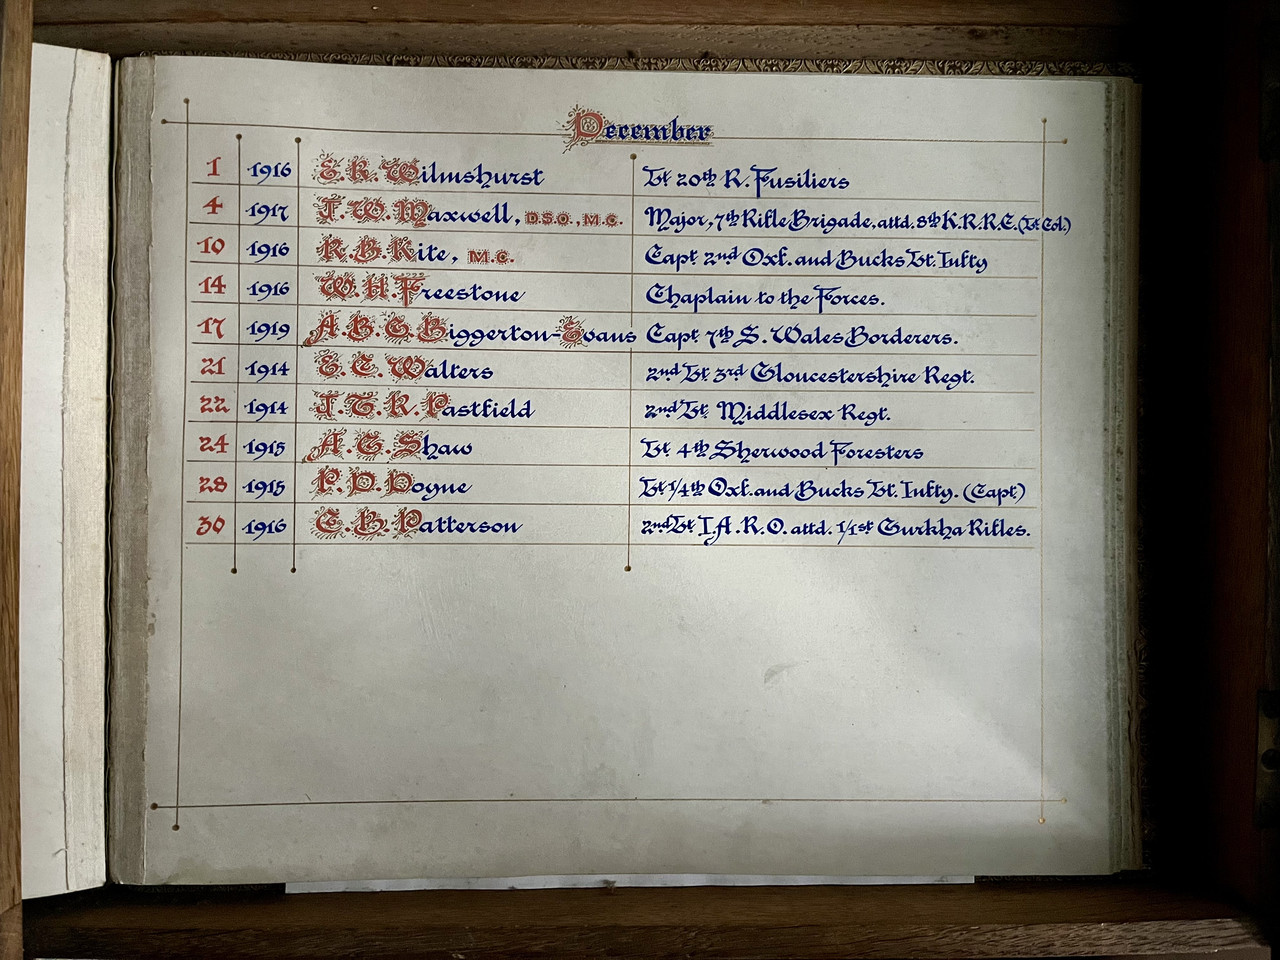 December
1 1916 E. R. Wilmshurst Lt 20th R. Fusiliers
4 1917 J. W. Maxwell, D.S.O., M.C. Major, 7th Rifle Brigade, attd. 8th K.R.R.C. (Lt. Col.)
10 1916 R. B. Kite, M.C. Capt 2nd Oxf. and Bucks Lt. Infty
14 1916 W. H. Freestone Chaplain to the Forces.
17 1919 A. B. G. Biggerton-Evans Capt 7th S. Wales Borderers.
21 1914 E. C. Walters 2nd Lt 3rd Gloucestershire Regt.
22 1914 J. T. R. Pastfield 2nd Lt Middlesex Regt.
24 1915 A. G. Shaw Lt 4th Sherwood Foresters
28 1915 P. D. Doyne Lt 1/4th Oxf. and Bucks Lt. Infty. (Capt)
30 1916 C. H. Patterson 2nd Lt I.A.R.O. attd. 1/1st Gurkha Rifles.